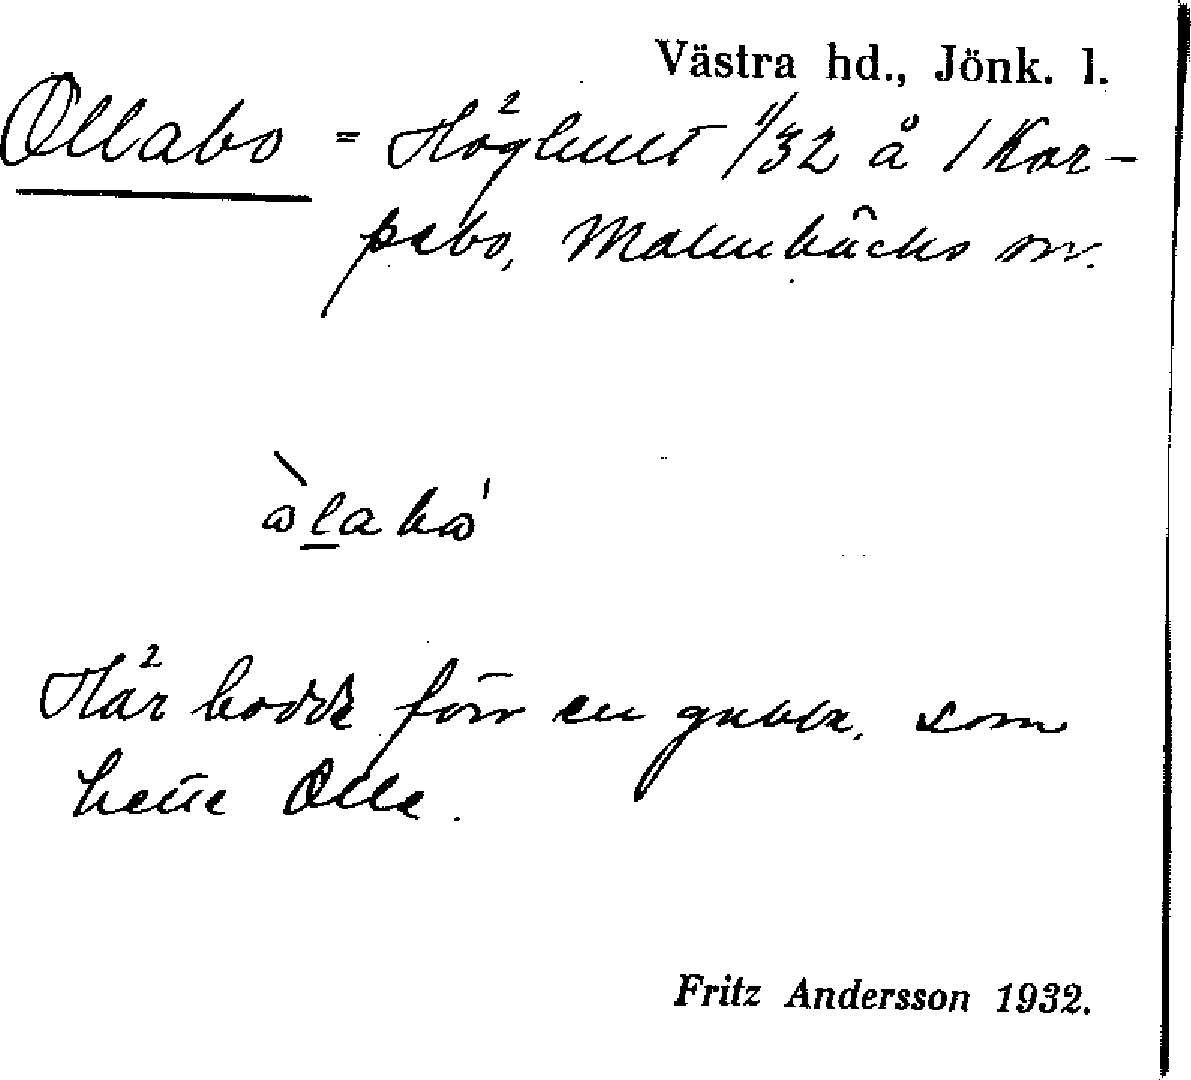 Västra hd., Jönk. l.
Ollabo = Höghult 1/32 å 1 Kar-
pabo, Malmbäcks sn.
Här bodde förr en gubbe, som
hette Olle.
Fritz Andersson 1932.